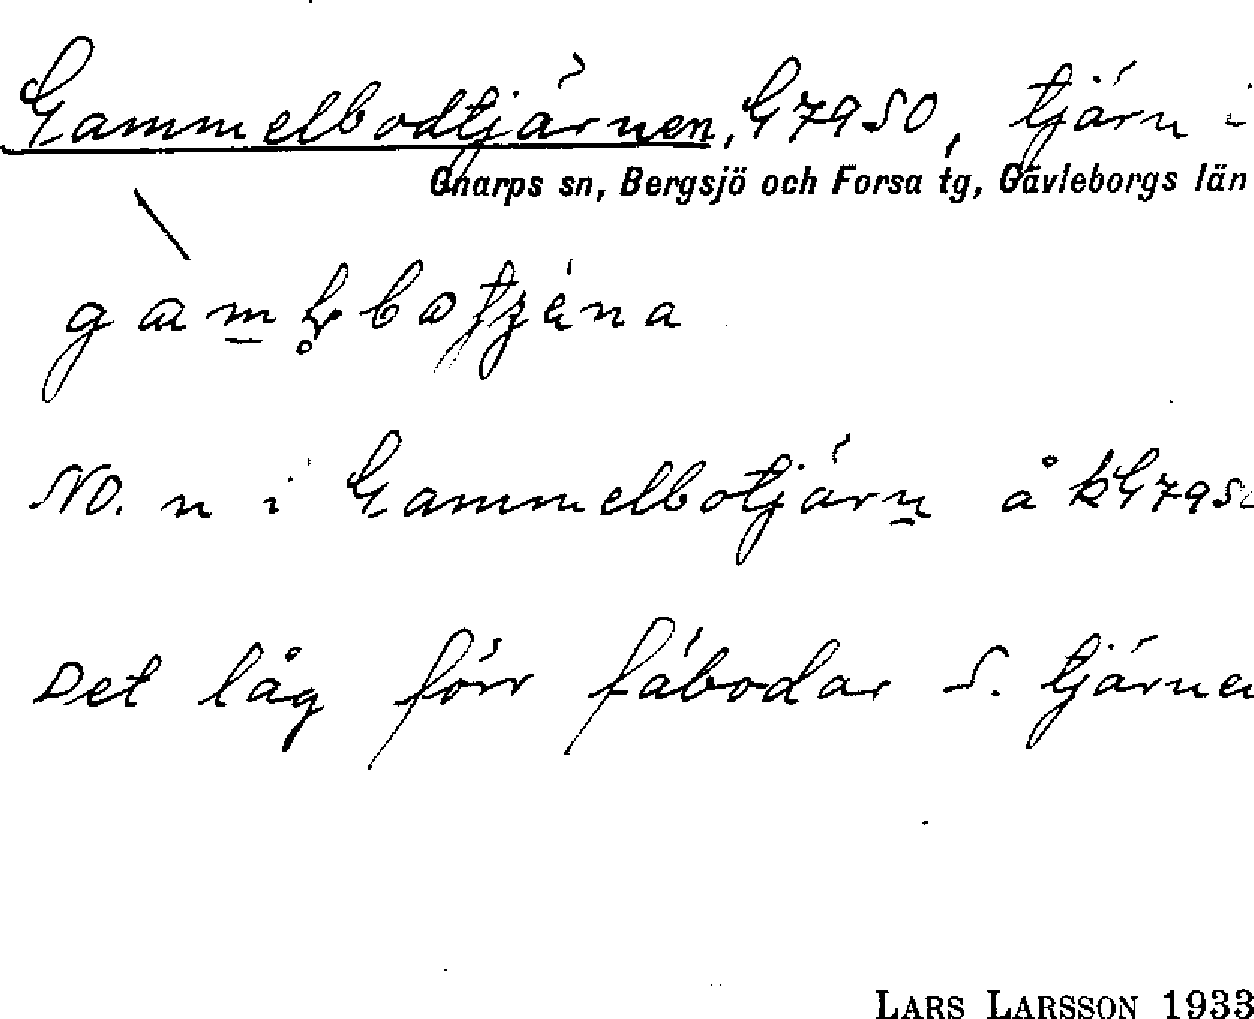 Gammelbodtjärnen, G7950, tjärn i
Gnarps sn, Bergsjö och Forsa tg, Gävleborgs län
NO. n i Gammelbotjärn å kG7950
Det låg förr fäbodar S. tjärnen
LARS LARSSON 1933